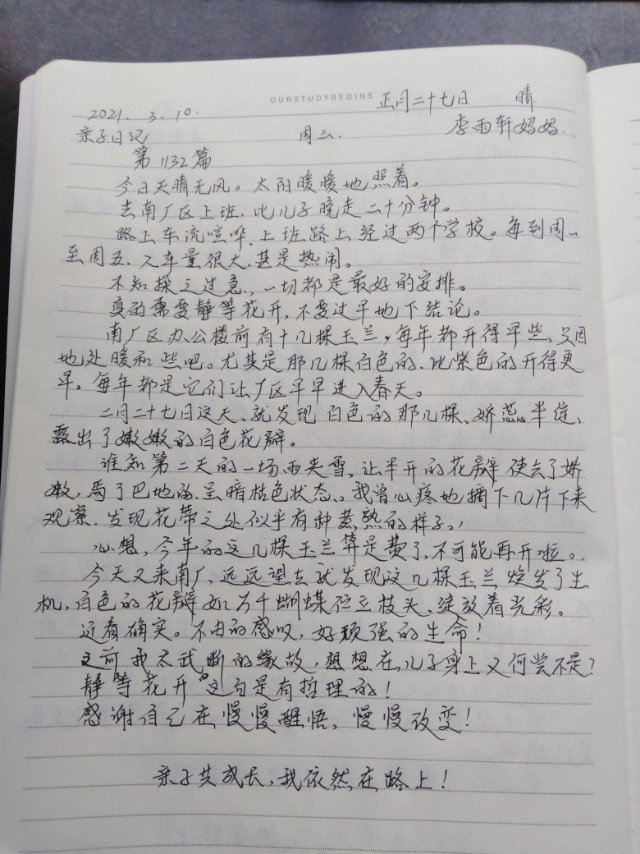 OURSTUDYBEGINS
2021. 3. 10. 正月二十七日 晴
亲子日记 周三 李雨轩妈妈
第1132篇
今日天晴无风。太阳暖暖地照着。
去南厂区上班,比儿子晚走二十分钟。
路上车流喧哗,上班路上经过两个学校。每到周一
至周五,人车量很大,甚是热闹。
不知探之过急,一切都是最好的安排。
真的需要静等花开,不要过早地下结论。
南厂区办公楼前有十几棵玉兰,每年都开得早些,
地处暖和些吧。尤其是那几棵白色的,比紫色的开得更
早。每年都是它们让厂区早早进入春天。
二月二十七日这天,就发现白色的那几棵,娇蕊半绽,
露出了嫩嫩的白色花瓣。
谁知第二天的一场雨夹雪,让半开的花瓣失去了娇
嫩,蔫了巴地的呈暗桔色状态。我曾心疼地摘下几片下来
观察,发现花蒂之处似乎有种蒸熟的样子。
心想,今年的这几棵玉兰算是费了,不可能再开啦。
今天又来南厂,远远望去就发现这几棵玉兰焕发了生
机,白色的花瓣如万千蝴蝶位立枝头,绽放着光彩。
近看确实。不由的感叹,好顽强的生命!
之前我太武断的缘故,想想在儿子身上又何尝不是?
静等花开 这句是有哲理的!
感谢自己在慢慢醒悟、慢慢改变!
亲子共成长,我依然在路上!